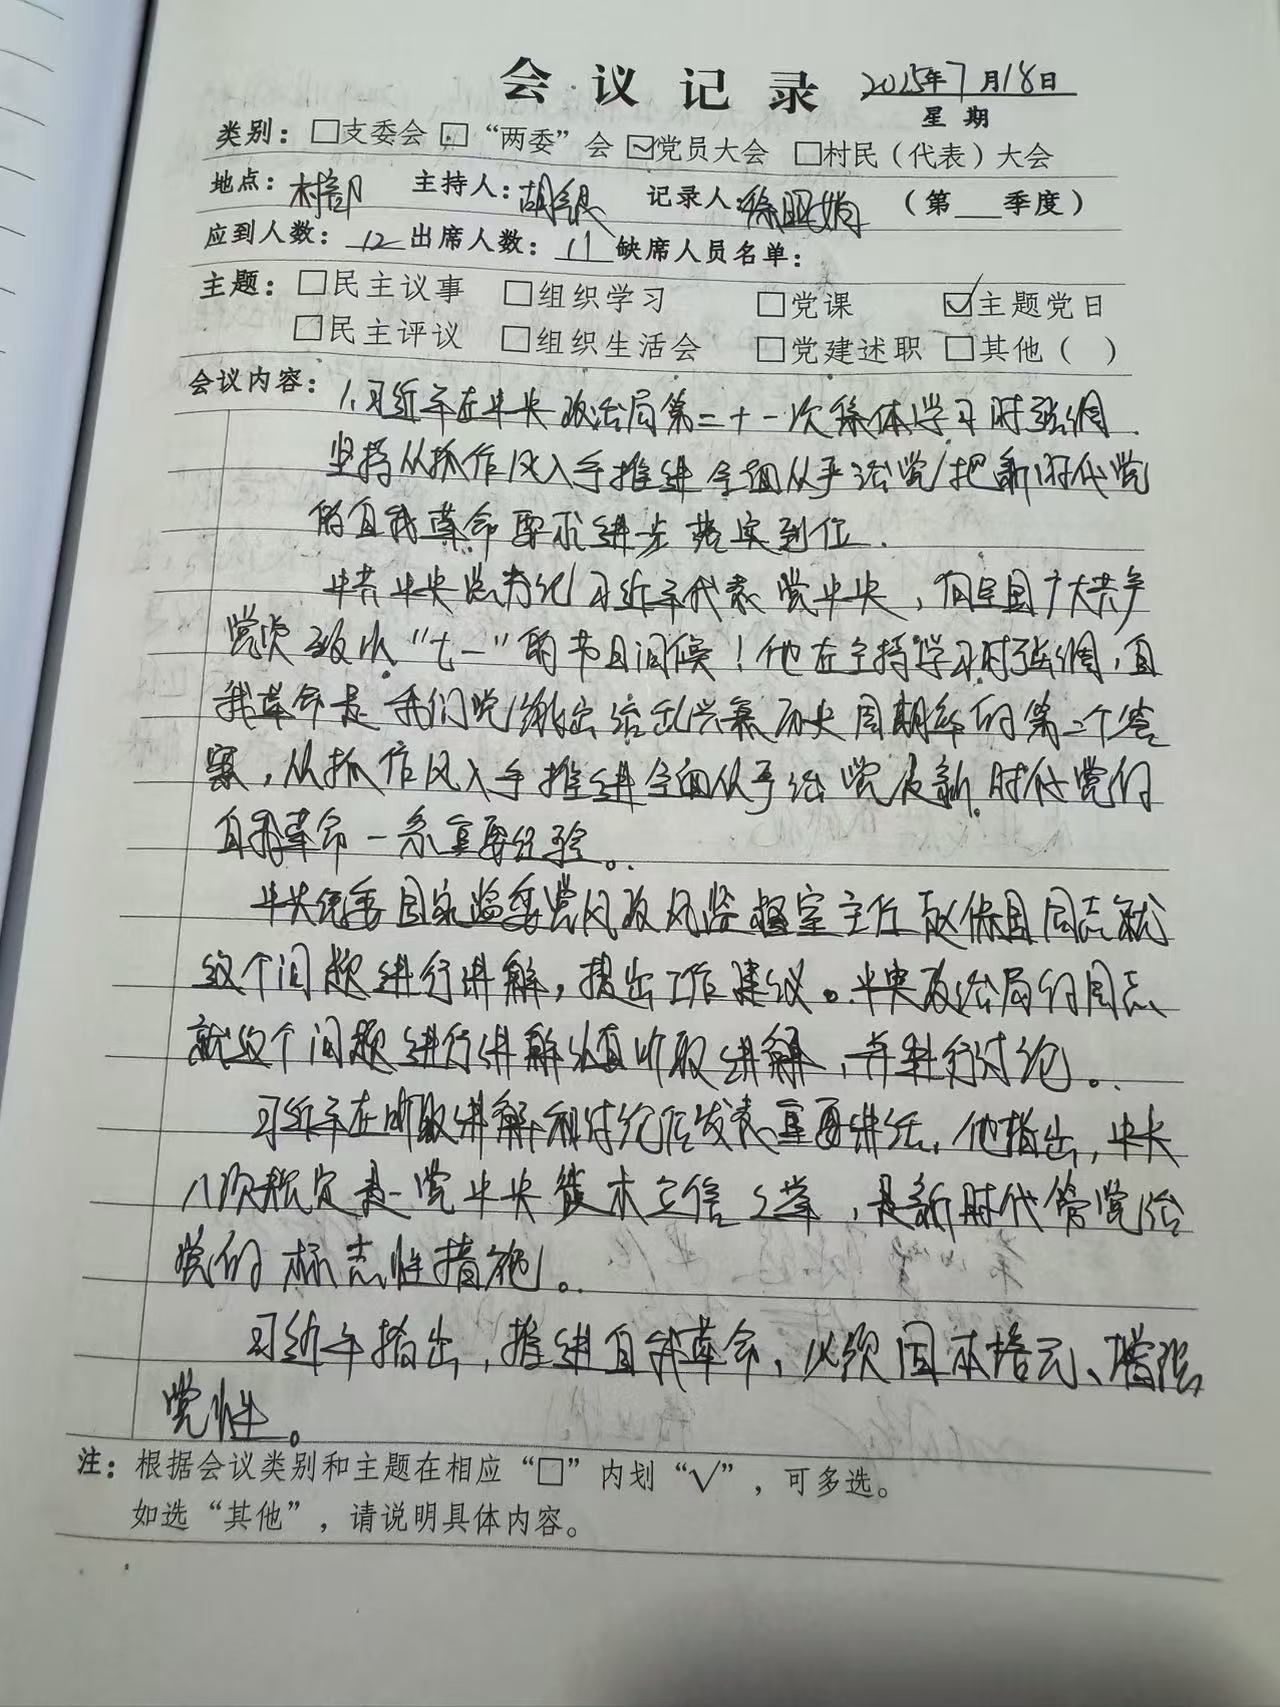 会议记录 2025年7月18日
星期
类别：□支委会 □“两委”会 ☑党员大会 □村民（代表）大会
地点：村部 主持人：胡银 记录人：徐昭娟 （第 季度）
应到人数：12 出席人数：11 缺席人员名单：
主题：□民主议事 □组织学习 □党课 ☑主题党日
□民主评议 □组织生活会 □党建述职 □其他（ ）
会议内容：1.习近平在中央政治局第二十一次集体学习时强调
坚持从抓作风入手推进全面从严治党/把新时代党
的自我革命要求进步落实到位.
中共中央总书记习近平代表党中央，向全国广大共产
党员致以“七一”的节日问候！他在主持学习时强调，自
我革命是我们党跳出治乱兴衰历史周期率的第二个答
案，从抓作风入手推进全面从严治党是新时代党的
自我革命一条重要经验。
中央纪委国家监委党风政风监督室主任赵保国同志就
这个问题进行讲解，提出工作建议。中央政治局的同志
就这个问题进行讲解认真听取讲解，并进行讨论。
习近平在听取讲解和讨论后发表重要讲话，他指出，中央
八项规定是党中央徙木立信之举，是新时代管党治
党的标志性措施。
习近平指出，推进自我革命，必须固本培元、增强
党性。
注：根据会议类别和主题在相应“□”内划“√”，可多选。
如选“其他”，请说明具体内容。